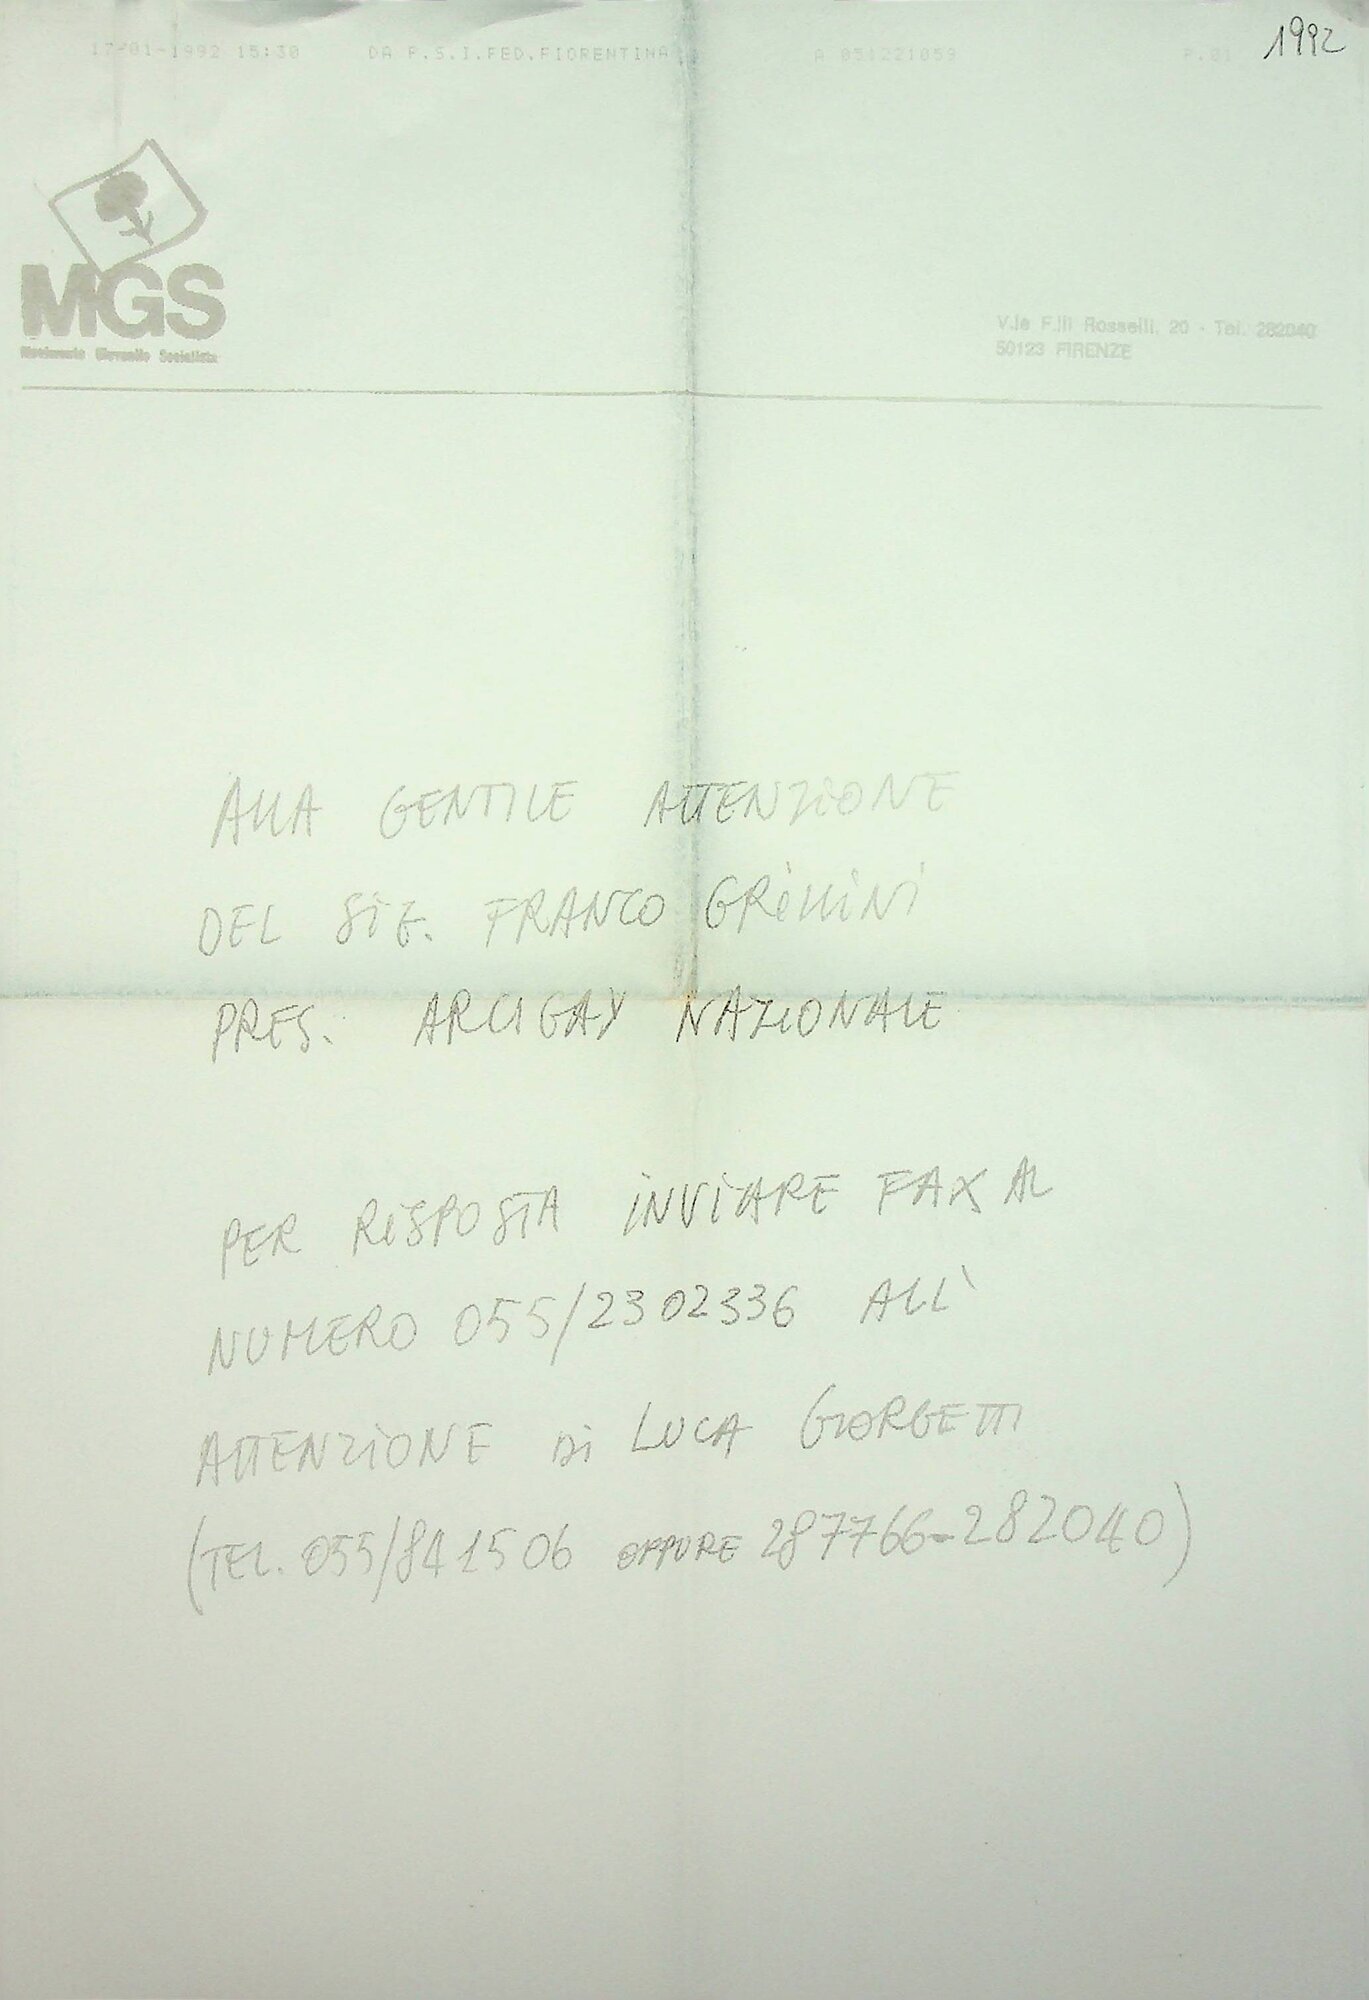 1992
17-01-1992 15:30 DA P.S.I.FED.FIORENTINA A 051221059 P.01
MGS
Movimento Giovanile Socialista
V.le F.lli Rosselli, 20 - Tel. 282040
50123 FIRENZE
ALLA GENTILE ATTENZIONE
DEL SIG. FRANCO GRILLINI
PRES. ARCIGAY NAZIONALE
PER RISPOSTA INVIARE FAX AL
NUMERO 055/2302336 ALL'
ATTENZIONE DI LUCA GIORGETTI
(TEL. 055/841506 OPPURE 287766-282040)